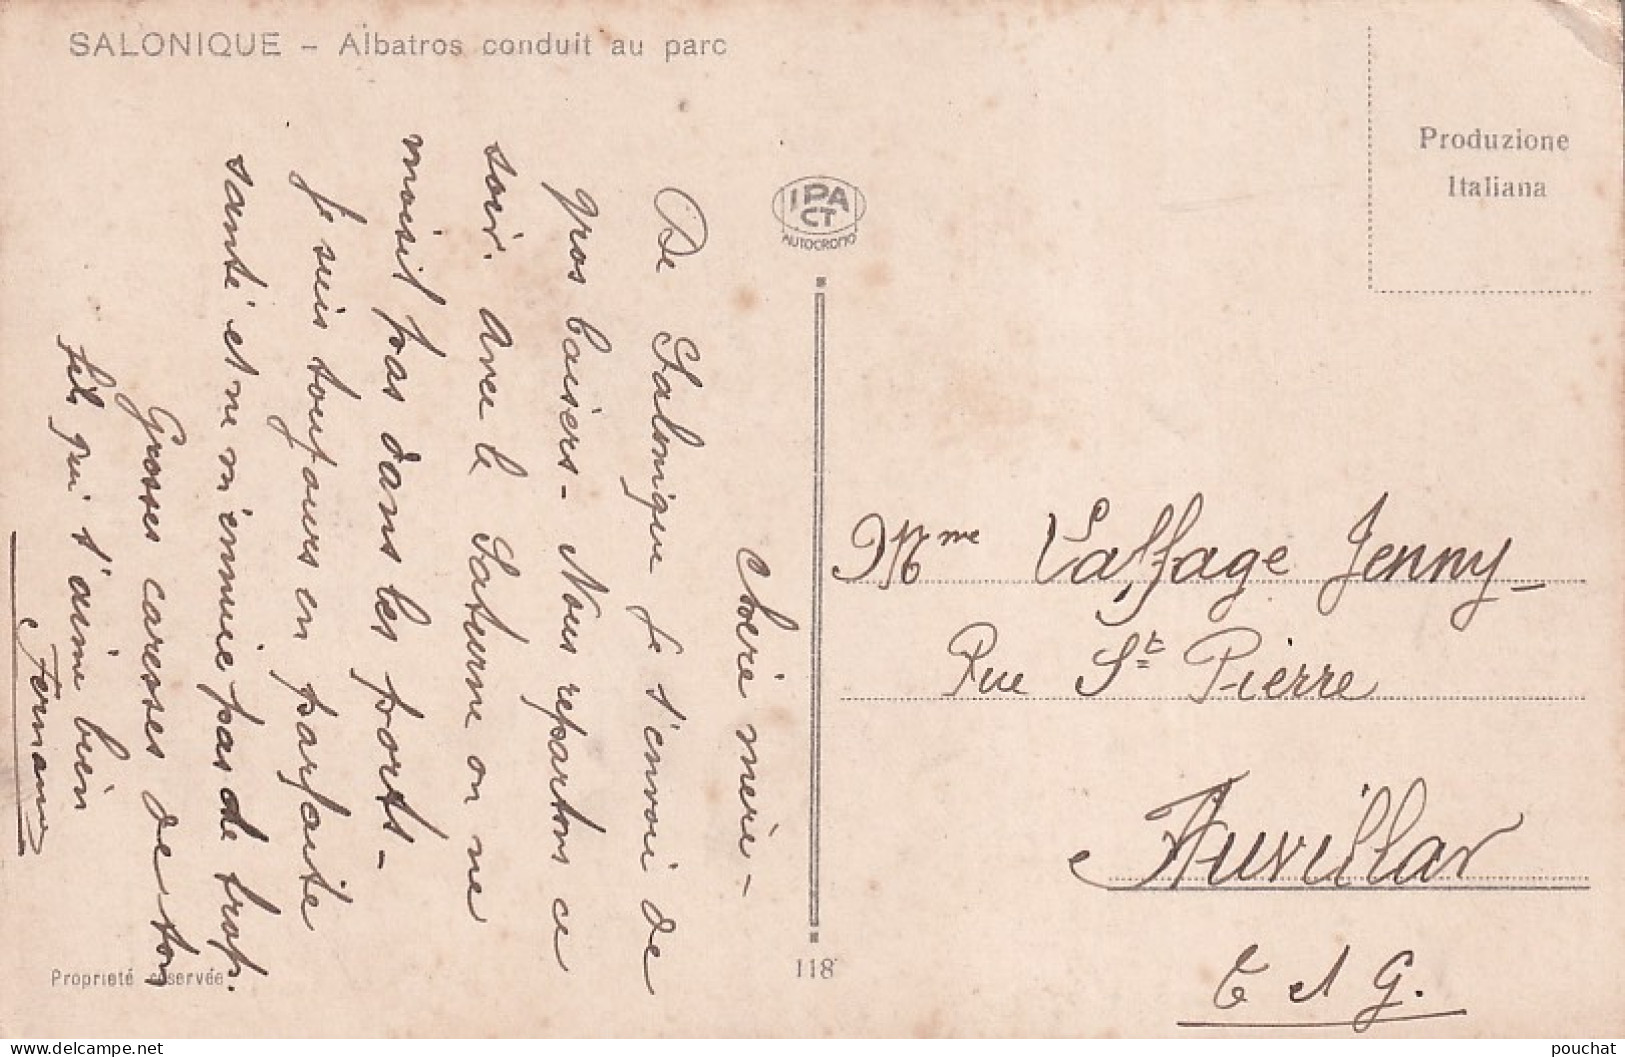 SALONIQUE – Albatros conduit au parc
Chérie mère –
De Salonique je t'envoi de
gros baisers – Nous repartons ce
soir. Avec le Saturne on ne
moisit pas dans les ports –
Je suis toujours en parfaite
santé et ne m'ennuie pas de trop.
Grosses caresses de ton
fils qui t'aime bien
Fernand
Propriété réservée
IPA
CT
AUTOCROMO
118
Produzione
Italiana
Mme Laffage Jenny
Rue St Pierre
Auvillar
T et G.
pouchat
www.delcampe.net